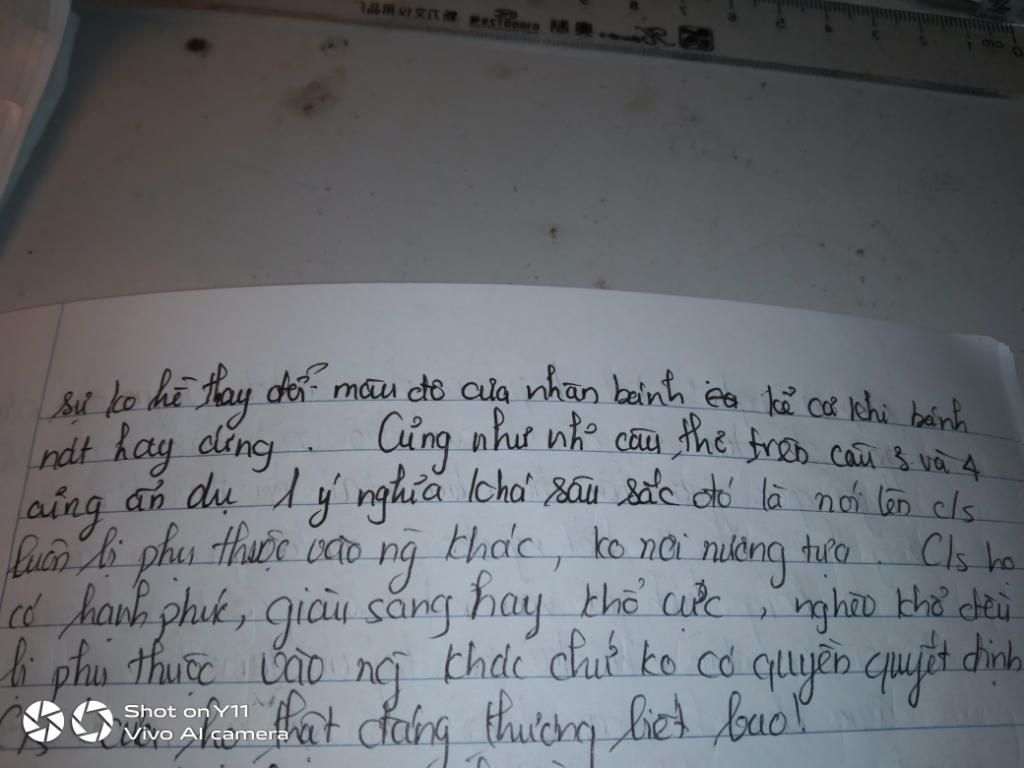 sự ko hề thay đổi màu đỏ của nhân bánh kể cả khi bánh
nát hay cứng. Cũng như nhỏ câu thơ trên câu 3 và 4
cũng ẩn dụ 1 ý nghĩa khá sâu sắc đó là nói lên c/s
luôn bị phụ thuộc vào ng khác, ko nơi nương tựa. C/s họ
có hạnh phúc, giàu sang hay khổ cực, nghèo khổ đều
bị phụ thuộc vào ng khác chứ ko có quyền quyết định
thật đáng thương biết bao!
Shot on Y11
Vivo AI camera